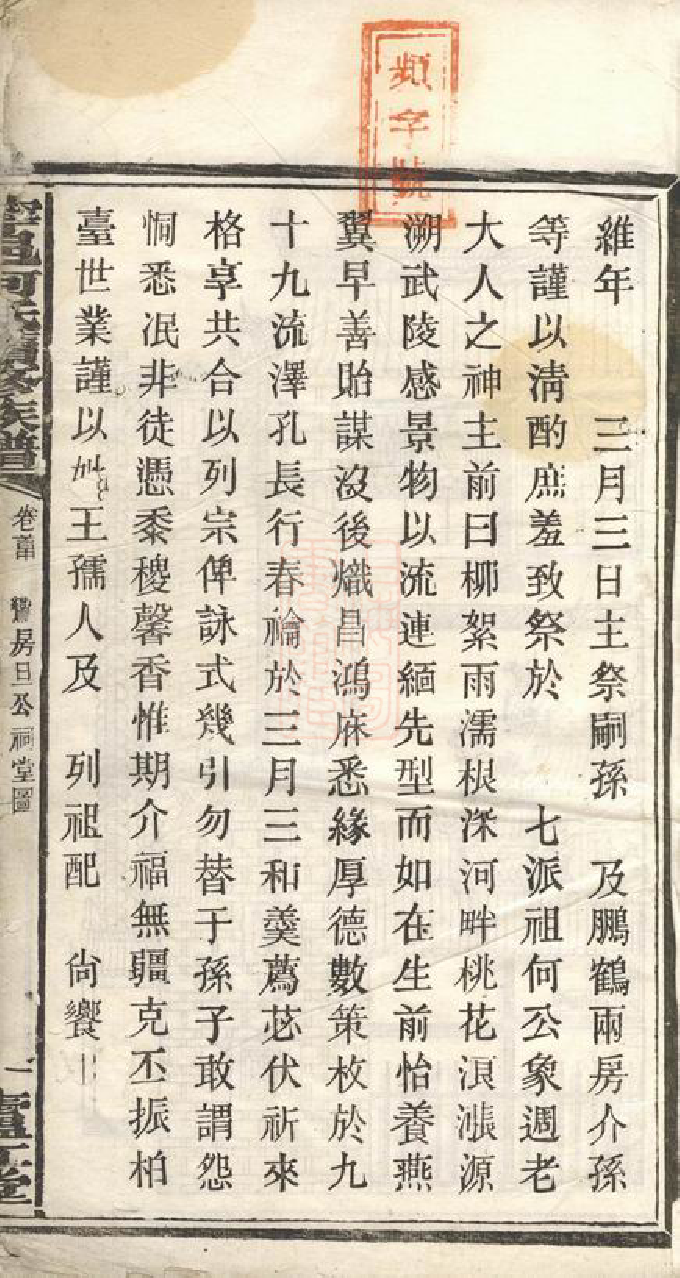 頻字號
維年　三月三日主祭嗣孫　及鵬鶴兩房介孫
等謹以淸酌庶羞致祭於　七派祖何公象週老
大人之神主前曰柳絮雨濡根深河畔桃花浪漲源
溯武陵感景物以流連緬先型而如在生前怡養燕
翼早善貽謀沒後熾昌鴻庥悉緣厚德數策枚於九
十九流澤孔長行春禴於三月三和羹薦苾伏祈來
格享共合以列宗俾詠式幾引勿替于孫子敢謂怨
恫悉泯非徒憑黍稷馨香惟期介福無疆克丕振柏
臺世業謹以妣王孺人及　列祖配　尙饗
何氏續修族譜
卷首　房日公祠堂圖
一